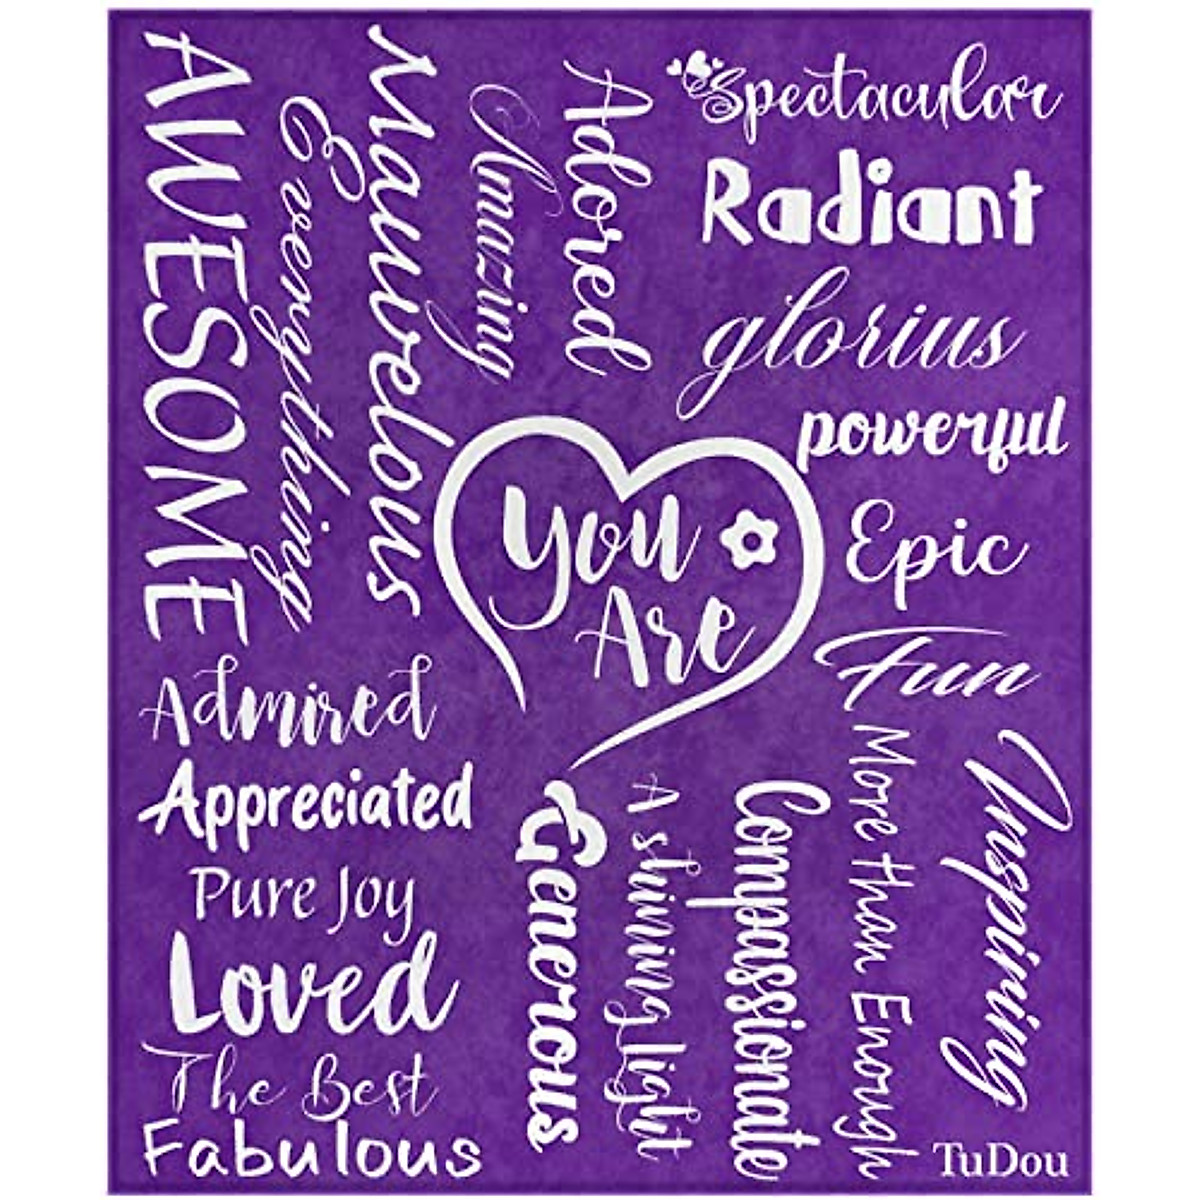 AWESOME
Everything
Marvelous
Amazing
Adored
Spectacular
Radiant
glorius
powerful
You
Are
Epic
Fun
Admired
Appreciated
Pure Joy
Loved
The Best
Fabulous
Generous
A shining light
Compassionate
More than Enough
Inspiring
TuDou